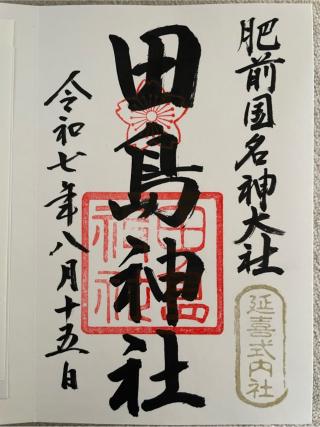 肥前国名神大社
延喜式内社
田島神社
田島神社
令和七年八月十五日